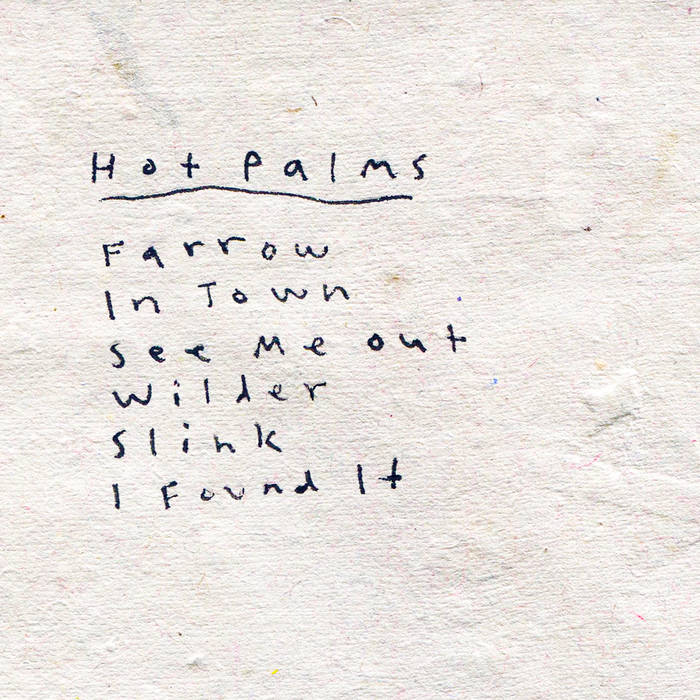 Hot Palms
Farrow
In Town
See Me out
Wilder
Slink
I Found It